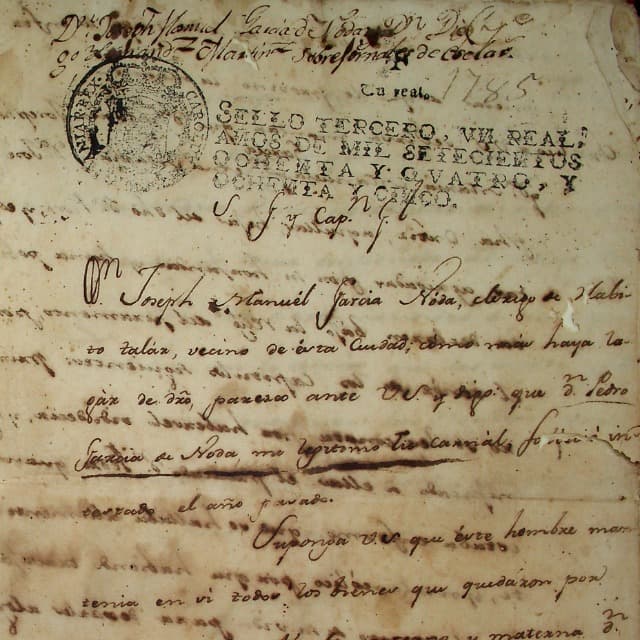 Dn. Joseph Manuel Garcia de Noda, Dn. Die
go
sobre
Un real.
1785
SELLO TERCERO, VN REAL,
AÑOS DE MIL SETECIENTOS
OCHENTA Y QVATRO, Y
OCHENTA Y CINCO.
S. J y Capn. Gl
Dn. Joseph Manuel Garcia Noda, clerigo de Habi
to talár, vecino de ésta Ciudad, como mas haya lu
gár de dro, paresco ante V.S. y digo que dn. Pedro
Garcia de Noda, mi legitimo tio carnál, falleció in
testado el año pasado.
Suponga V.S. que éste hombre man
tenia en si todos los bienes que quedaron por
y materna dn.